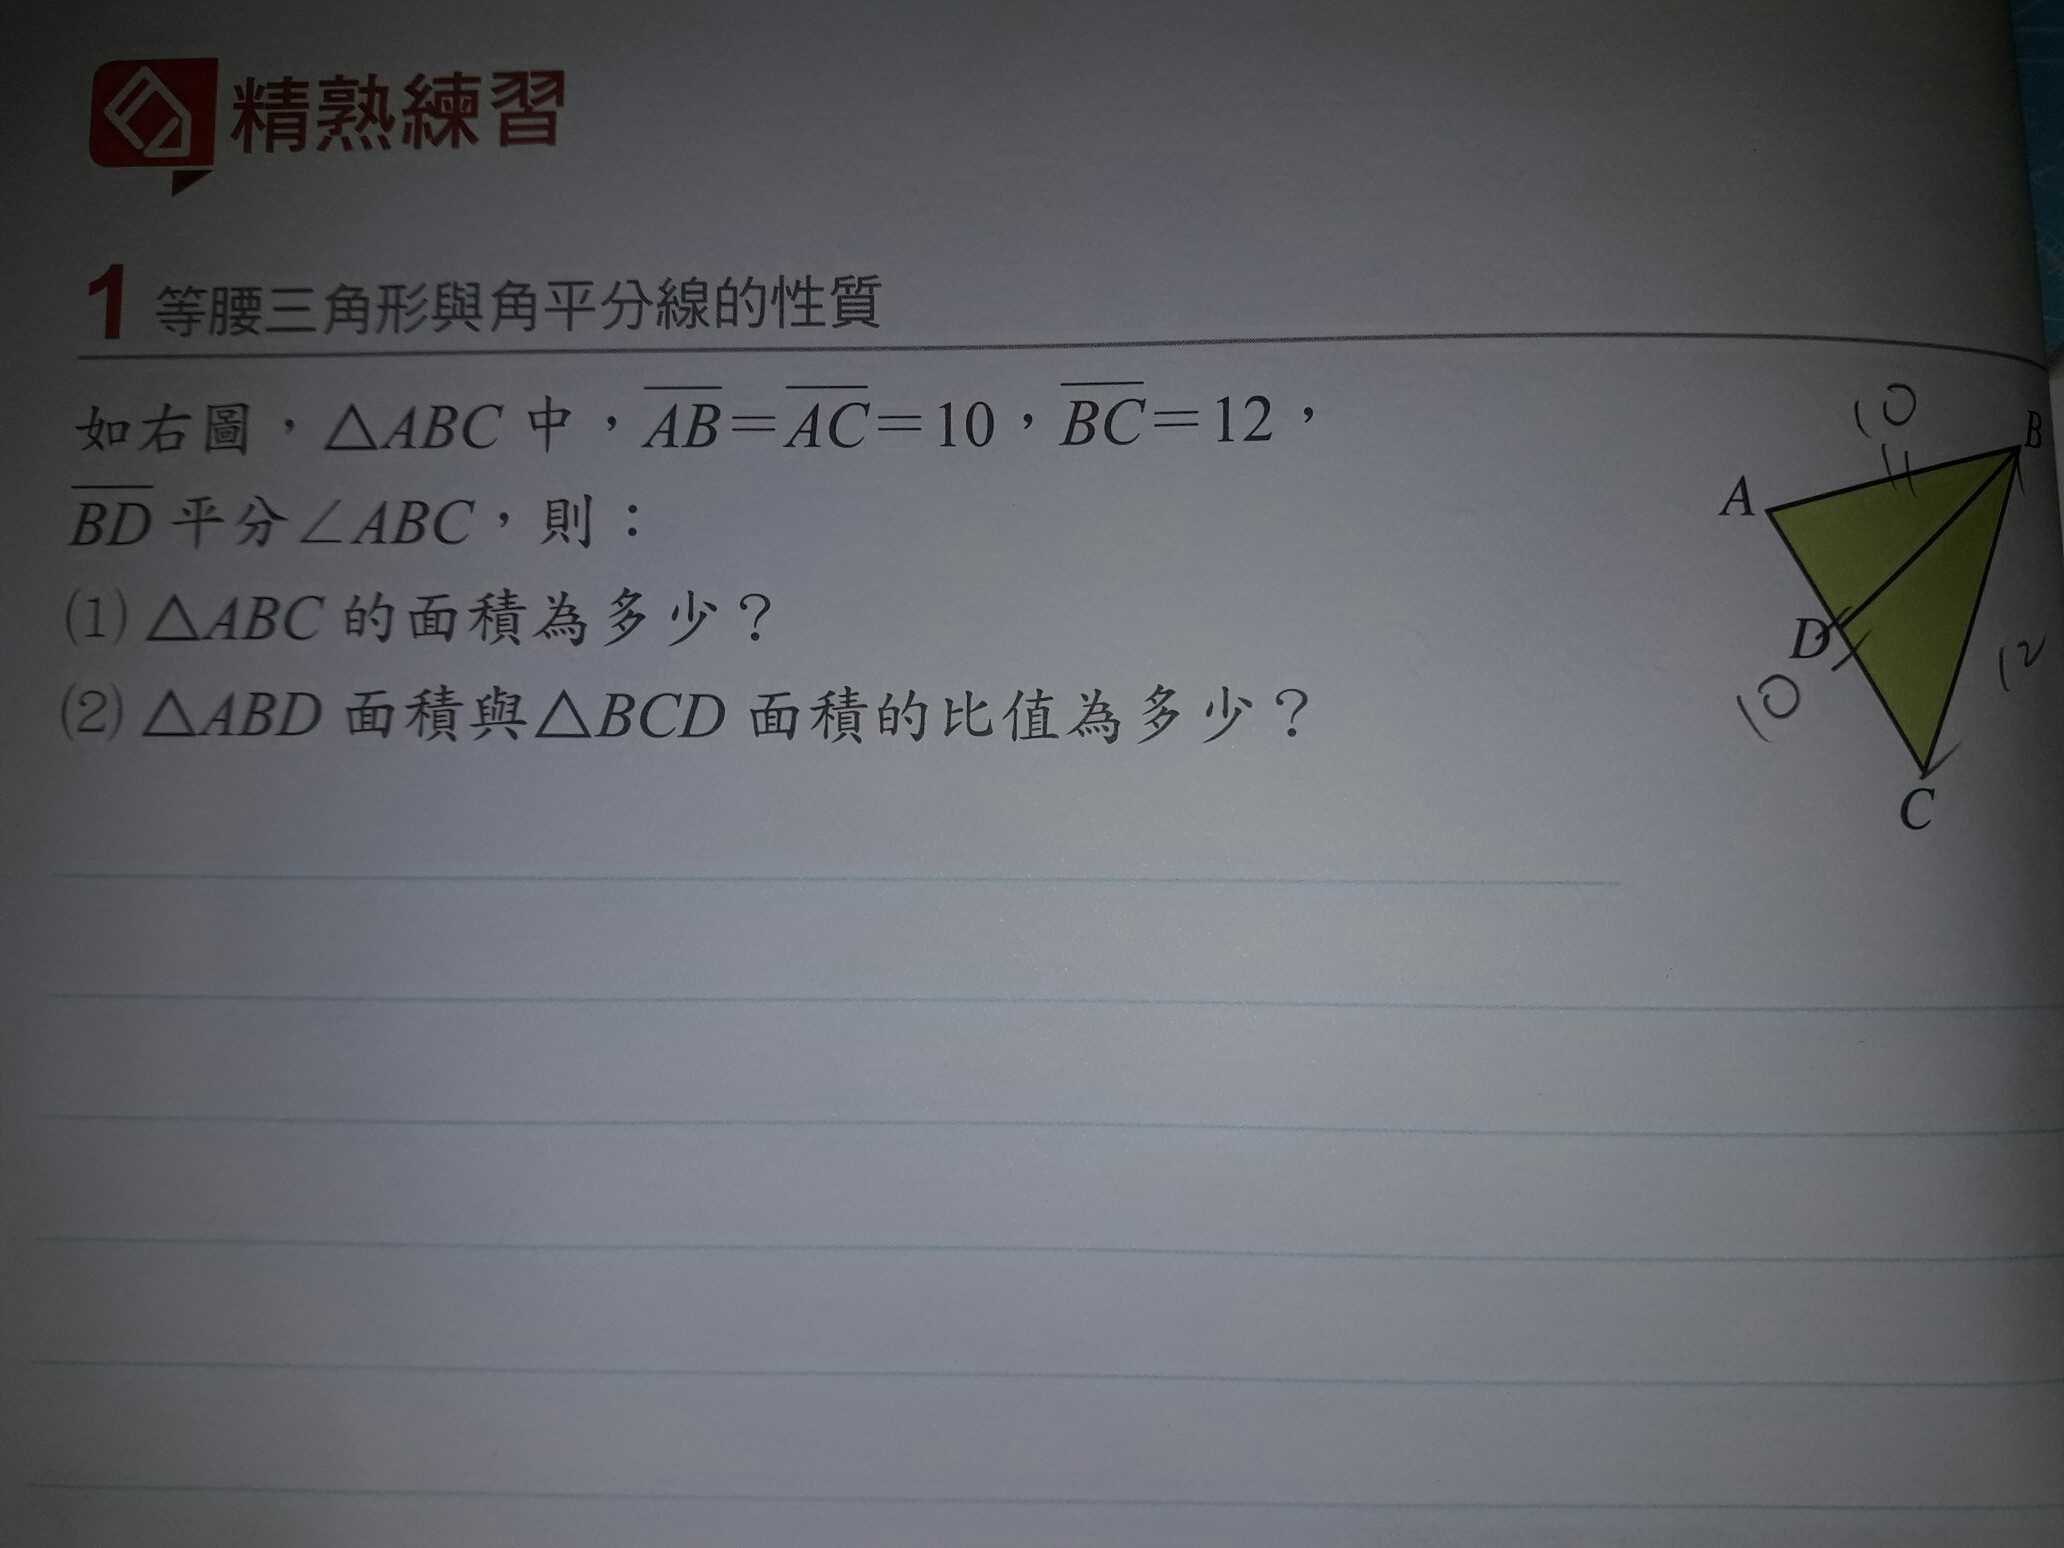 精熟練習
1 等腰三角形與角平分線的性質
如右圖，△ABC 中，AB＝AC＝10，BC＝12，
BD 平分∠ABC，則：
(1) △ABC 的面積為多少？
(2) △ABD 面積與△BCD 面積的比值為多少？
10
B
A
D
10
12
C